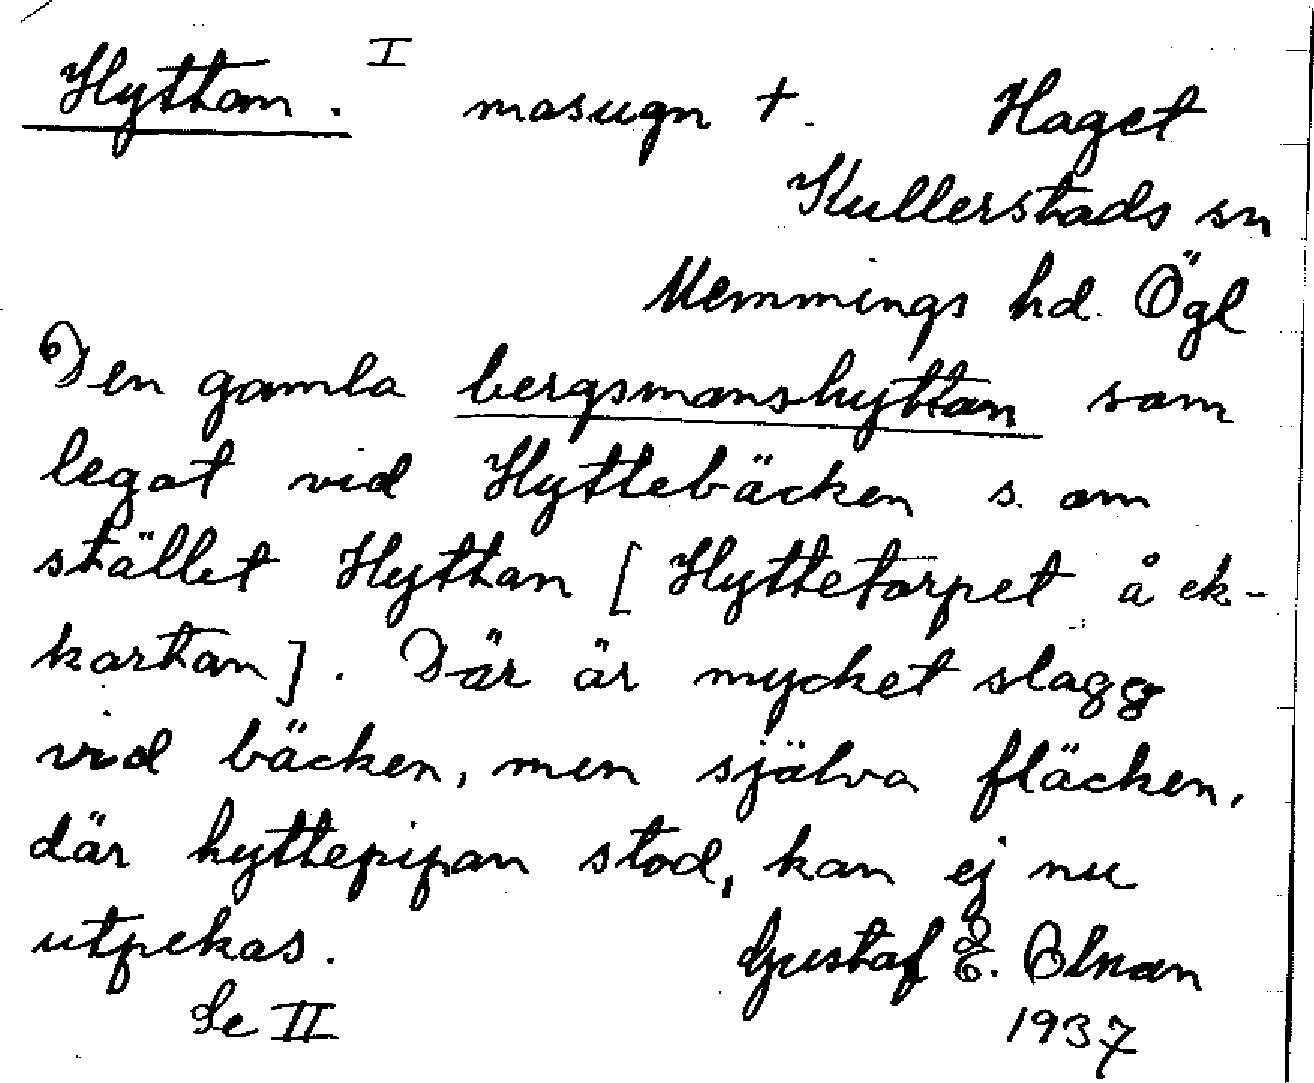 Hyttan. I masugn +. Haget
Kullerstads sn
Memmings hd. Ögl
Den gamla bergsmanshyttan som
legat vid Hyttebäcken s. om
stället Hyttan [Hyttetorpet å ek-
kartan]. Där är mycket slagg
vid bäcken, men själva fläcken,
där hyttepipan stod, kan ej nu
utpekas. Gustaf E.
Se II 1937